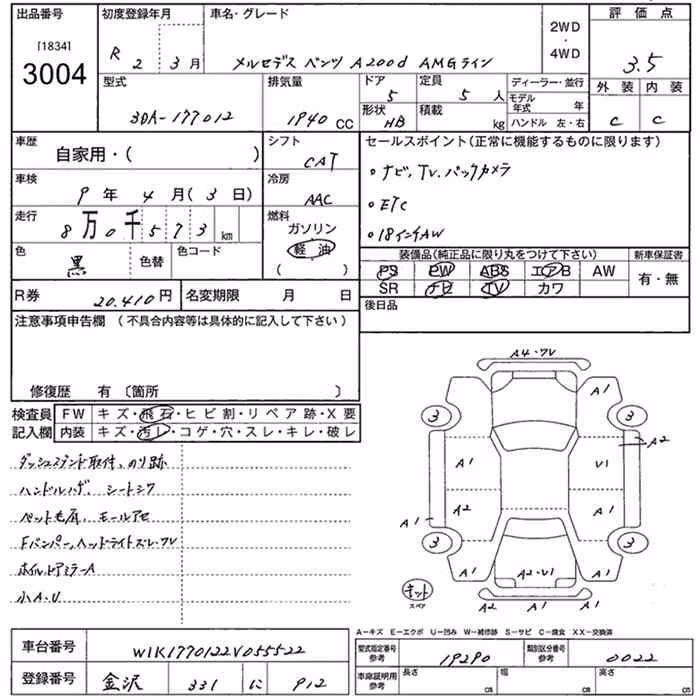 出品番号 初度登録年月 車名・グレード 2WD・4WD 評価点
[1834]
3004
R 2 3月 メルセデス ベンツ A200d AMGライン 3.5
型式 排気量 ドア 定員 ディーラー・並行 外装 内装
3DA-177012 1940 CC 5 5人 モデル年式 年
形状 HB 積載 kg ハンドル 左・右 C C
車歴 自家用・( ) シフト CAT
車検 9年 4月 (3日) 冷房 AAC
走行 8万0千573km 燃料 ガソリン 軽油 ( )
色 黒 色替 色コード
セールスポイント(正常に機能するものに限ります)
・ナビ、TV、バックカメラ
・ETC
・18インチAW
装備品(純正品に限り丸をつけて下さい) 新車保証書
PS PW ABS エアB AW 有・無
SR TV カワ
R券 20,410円 名変期限 月 日 後日品
注意事項申告欄 (不具合内容等は具体的に記入して下さい)
修復歴 有 〔箇所 〕
検査員記入欄 FW キズ・飛石・ヒビ割・リペア跡・X要
内装 キズ・汚レ・コゲ・穴・スレ・キレ・破レ
ダッシュスタンド取付、のり跡
ハンドルハゲ、シートシワ
ペット毛有、モールアセ
Fバンパー、ヘッドライトズレ・ワレ
ホイル、ドアミラーA
小A・U
A4・ワレ
A1 A1
3 3
A2
A1 U1
A2 A1
A1
3 3
A1 A2・U1 A1
A2 A1 A1
キット
スペア
A-キズ E-エクボ U-凹み W-補修跡 S-サビ C-腐食 XX-交換済
車台番号 W1K1770122V055522
登録番号 金沢 331 に 912
型式指定番号 参考 19290 類別区分番号 参考 0022
車庫証明用 参考 長さ cm 幅 cm 高さ cm